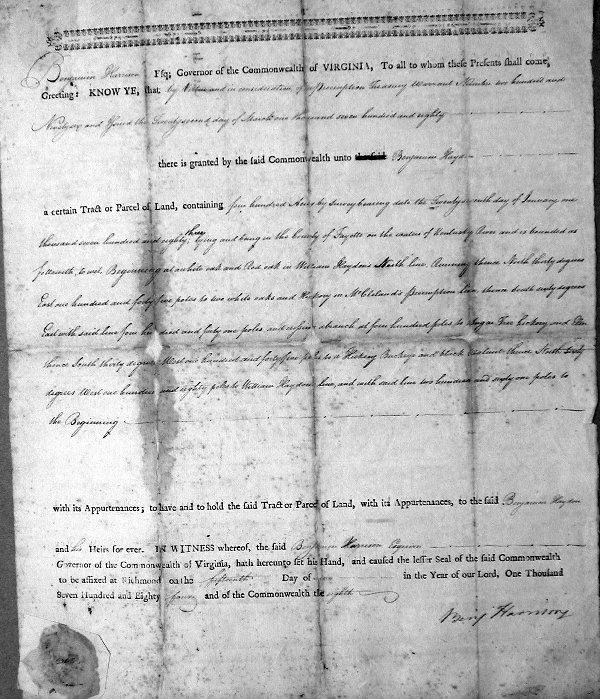 Benjamin Harrison Esq; Governor of the Commonwealth of VIRGINIA, To all to whom these Presents shall come,
Greeting: KNOW YE, that by Virtue and in consideration of a Preemption Treasury Warrant Number two hundred and
Ninety six and Issued the Twenty second day of March one thousand seven hundred and eighty
there is granted by the said Commonwealth unto the said Benjamin Haydon
a certain Tract or Parcel of Land, containing four hundred Acres by survey bearing date the Twenty seventh day of January one
thousand seven hundred and eighty three lying and being in the County of Fayette on the waters of Kentucky River and is bounded as
followeth, to wit, Beginning at a white oak and Red oak in William Haydon's North line, Running thence North thirty degrees
East one hundred and forty five poles to two white oaks and Hickory in McCleland's Preemption line, thence South sixty degrees
East with said line four hundred and forty one poles and a branch at four hundred poles to Sugar Tree hickory and Elm
thence South thirty degrees West one hundred and forty five poles to a Hickory Buckeye and black walnut thence North Sixty
degrees West one hundred and eighty poles to William Haydon's line, and with said line two hundred and sixty one poles to
the Beginning
with its Appurtenances; to have and to hold the said Tract or Parcel of Land, with its Appurtenances, to the said Benjamin Haydon
and his Heirs for ever. IN WITNESS whereof, the said Benjamin Harrison Esquire
Governor of the Commonwealth of Virginia, hath hereunto set his Hand, and caused the lesser Seal of the said Commonwealth
to be affixed at Richmond on the fifteenth Day of in the Year of our Lord, One Thousand
Seven Hundred and Eighty four and of the Commonwealth the eighth
Benj Harrison